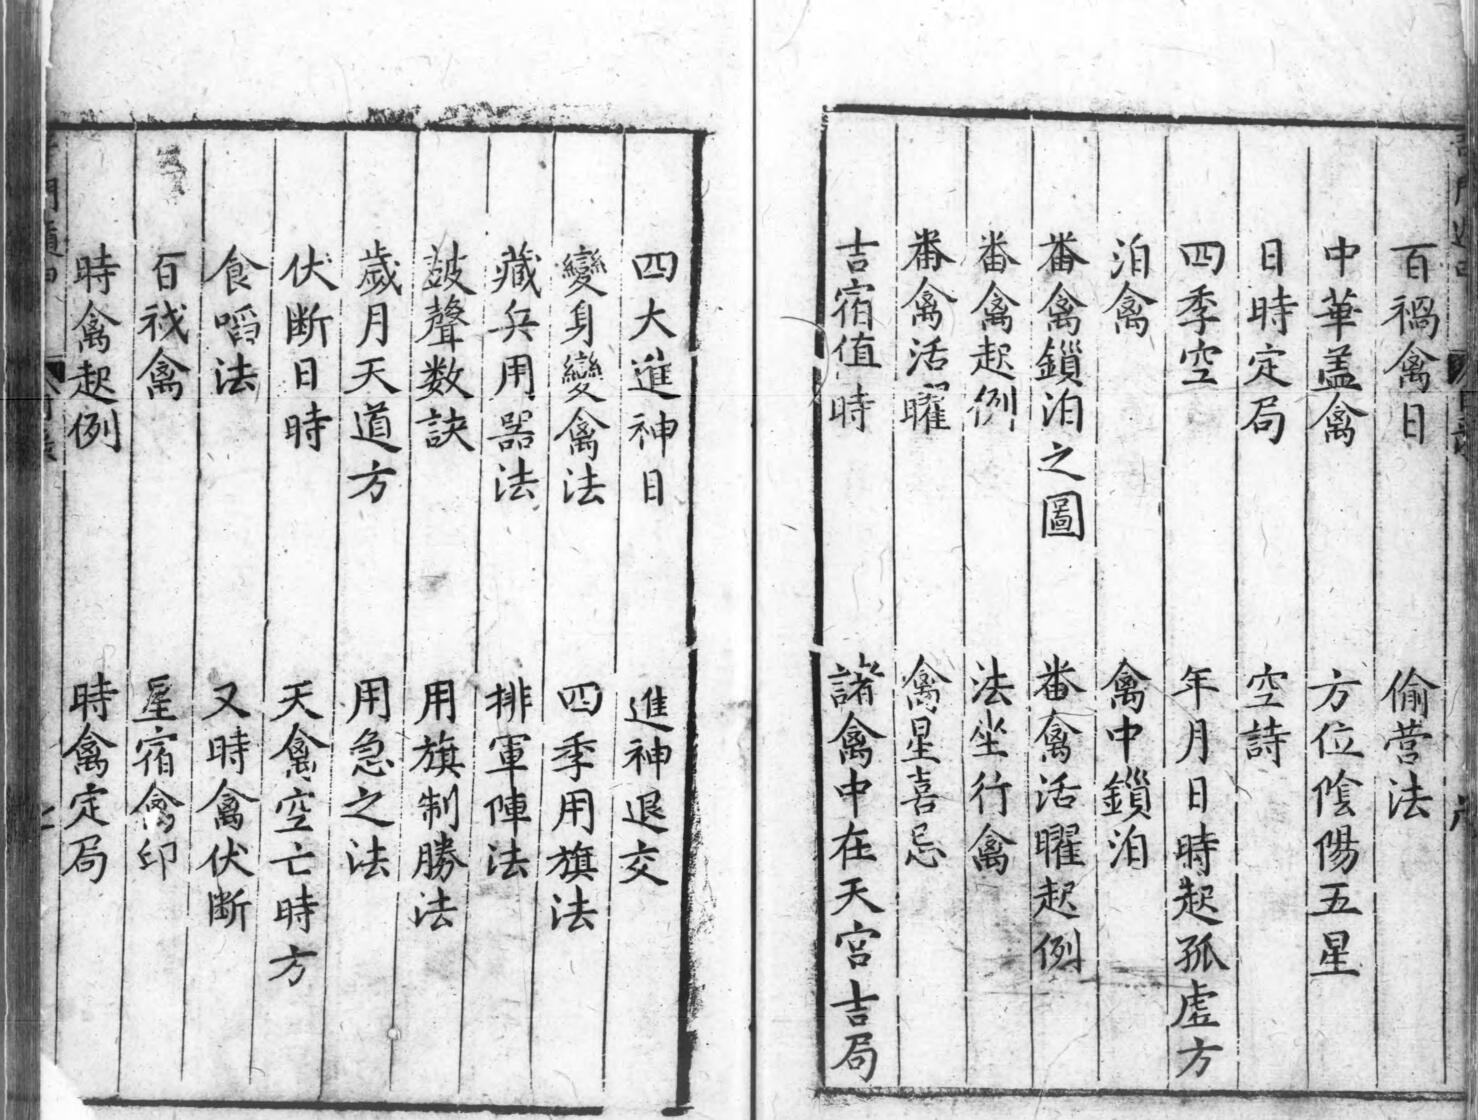 百禍禽日　偷营法
中華盖禽　方位陰陽五星
日時定局　空詩
四季空　年月日時起孤虚方
泊禽　禽中鎖泊
番禽鎖泊之圖　番禽活曜起例
番禽起例　法坐行禽
番禽活曜　禽星喜忌
吉宿值時　諸禽中在天宫吉局
四大進神日　進神退交
變身變禽法　四季用旗法
藏兵用器法　排軍陣法
鼓聲数訣　用旗制勝法
歲月天道方　用急之法
伏断日時　天禽空亡時方
食啗法　又時禽伏断
百禽　星宿禽印
時禽起例　時禽定局